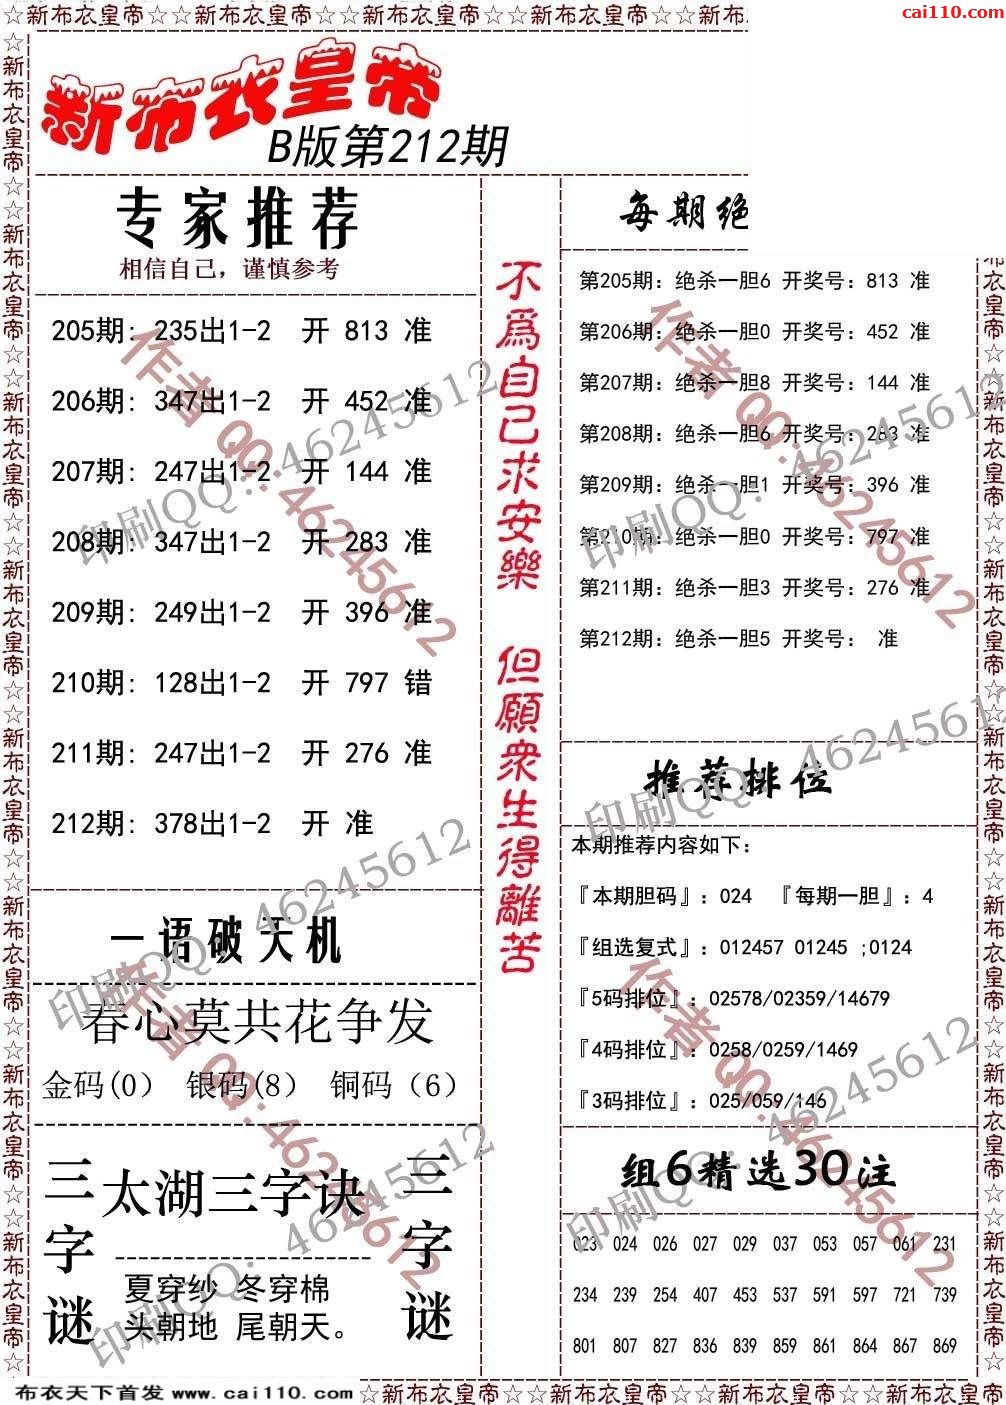 ☆新布衣皇帝☆☆新布衣皇帝☆☆新布衣皇帝☆☆新布衣皇帝☆☆新布
cai110.com
新布衣皇帝
B版第212期
专家推荐
相信自己，谨慎参考
205期: 235出1-2 开 813 准
206期: 347出1-2 开 452 准
207期: 247出1-2 开 144 准
208期: 347出1-2 开 283 准
209期: 249出1-2 开 396 准
210期: 128出1-2 开 797 错
211期: 247出1-2 开 276 准
212期: 378出1-2 开 准
一语破天机
春心莫共花争发
金码(0) 银码(8) 铜码(6)
三字谜
太湖三字诀
夏穿纱 冬穿棉
头朝地 尾朝天。
三字谜
不爲自己求安樂 但願衆生得離苦
每期绝
第205期: 绝杀一胆6 开奖号: 813 准
第206期: 绝杀一胆0 开奖号: 452 准
第207期: 绝杀一胆8 开奖号: 144 准
第208期: 绝杀一胆6 开奖号: 283 准
第209期: 绝杀一胆1 开奖号: 396 准
第210期: 绝杀一胆0 开奖号: 797 准
第211期: 绝杀一胆3 开奖号: 276 准
第212期: 绝杀一胆5 开奖号: 准
推荐排位
本期推荐内容如下:
『本期胆码』: 024 『每期一胆』: 4
『组选复式』: 012457 01245 ;0124
『5码排位』: 02578/02359/14679
『4码排位』: 0258/0259/1469
『3码排位』: 025/059/146
组6精选30注
023 024 026 027 029 037 053 057 061 231
234 239 254 407 453 537 591 597 721 739
801 807 827 836 839 859 861 864 867 869
作者 QQ:46245612
印刷QQ: 46245612
作者 QQ:46245612
印刷QQ: 46245612
印刷QQ: 46245612
印刷QQ: 46245612
作者 QQ:46245612
作者 QQ:46245612
印刷QQ: 46245612
印刷QQ: 46245612
布衣天下首发 www.cai110.com
☆新布衣皇帝☆☆新布衣皇帝☆☆新布衣皇帝☆☆新布衣皇帝☆